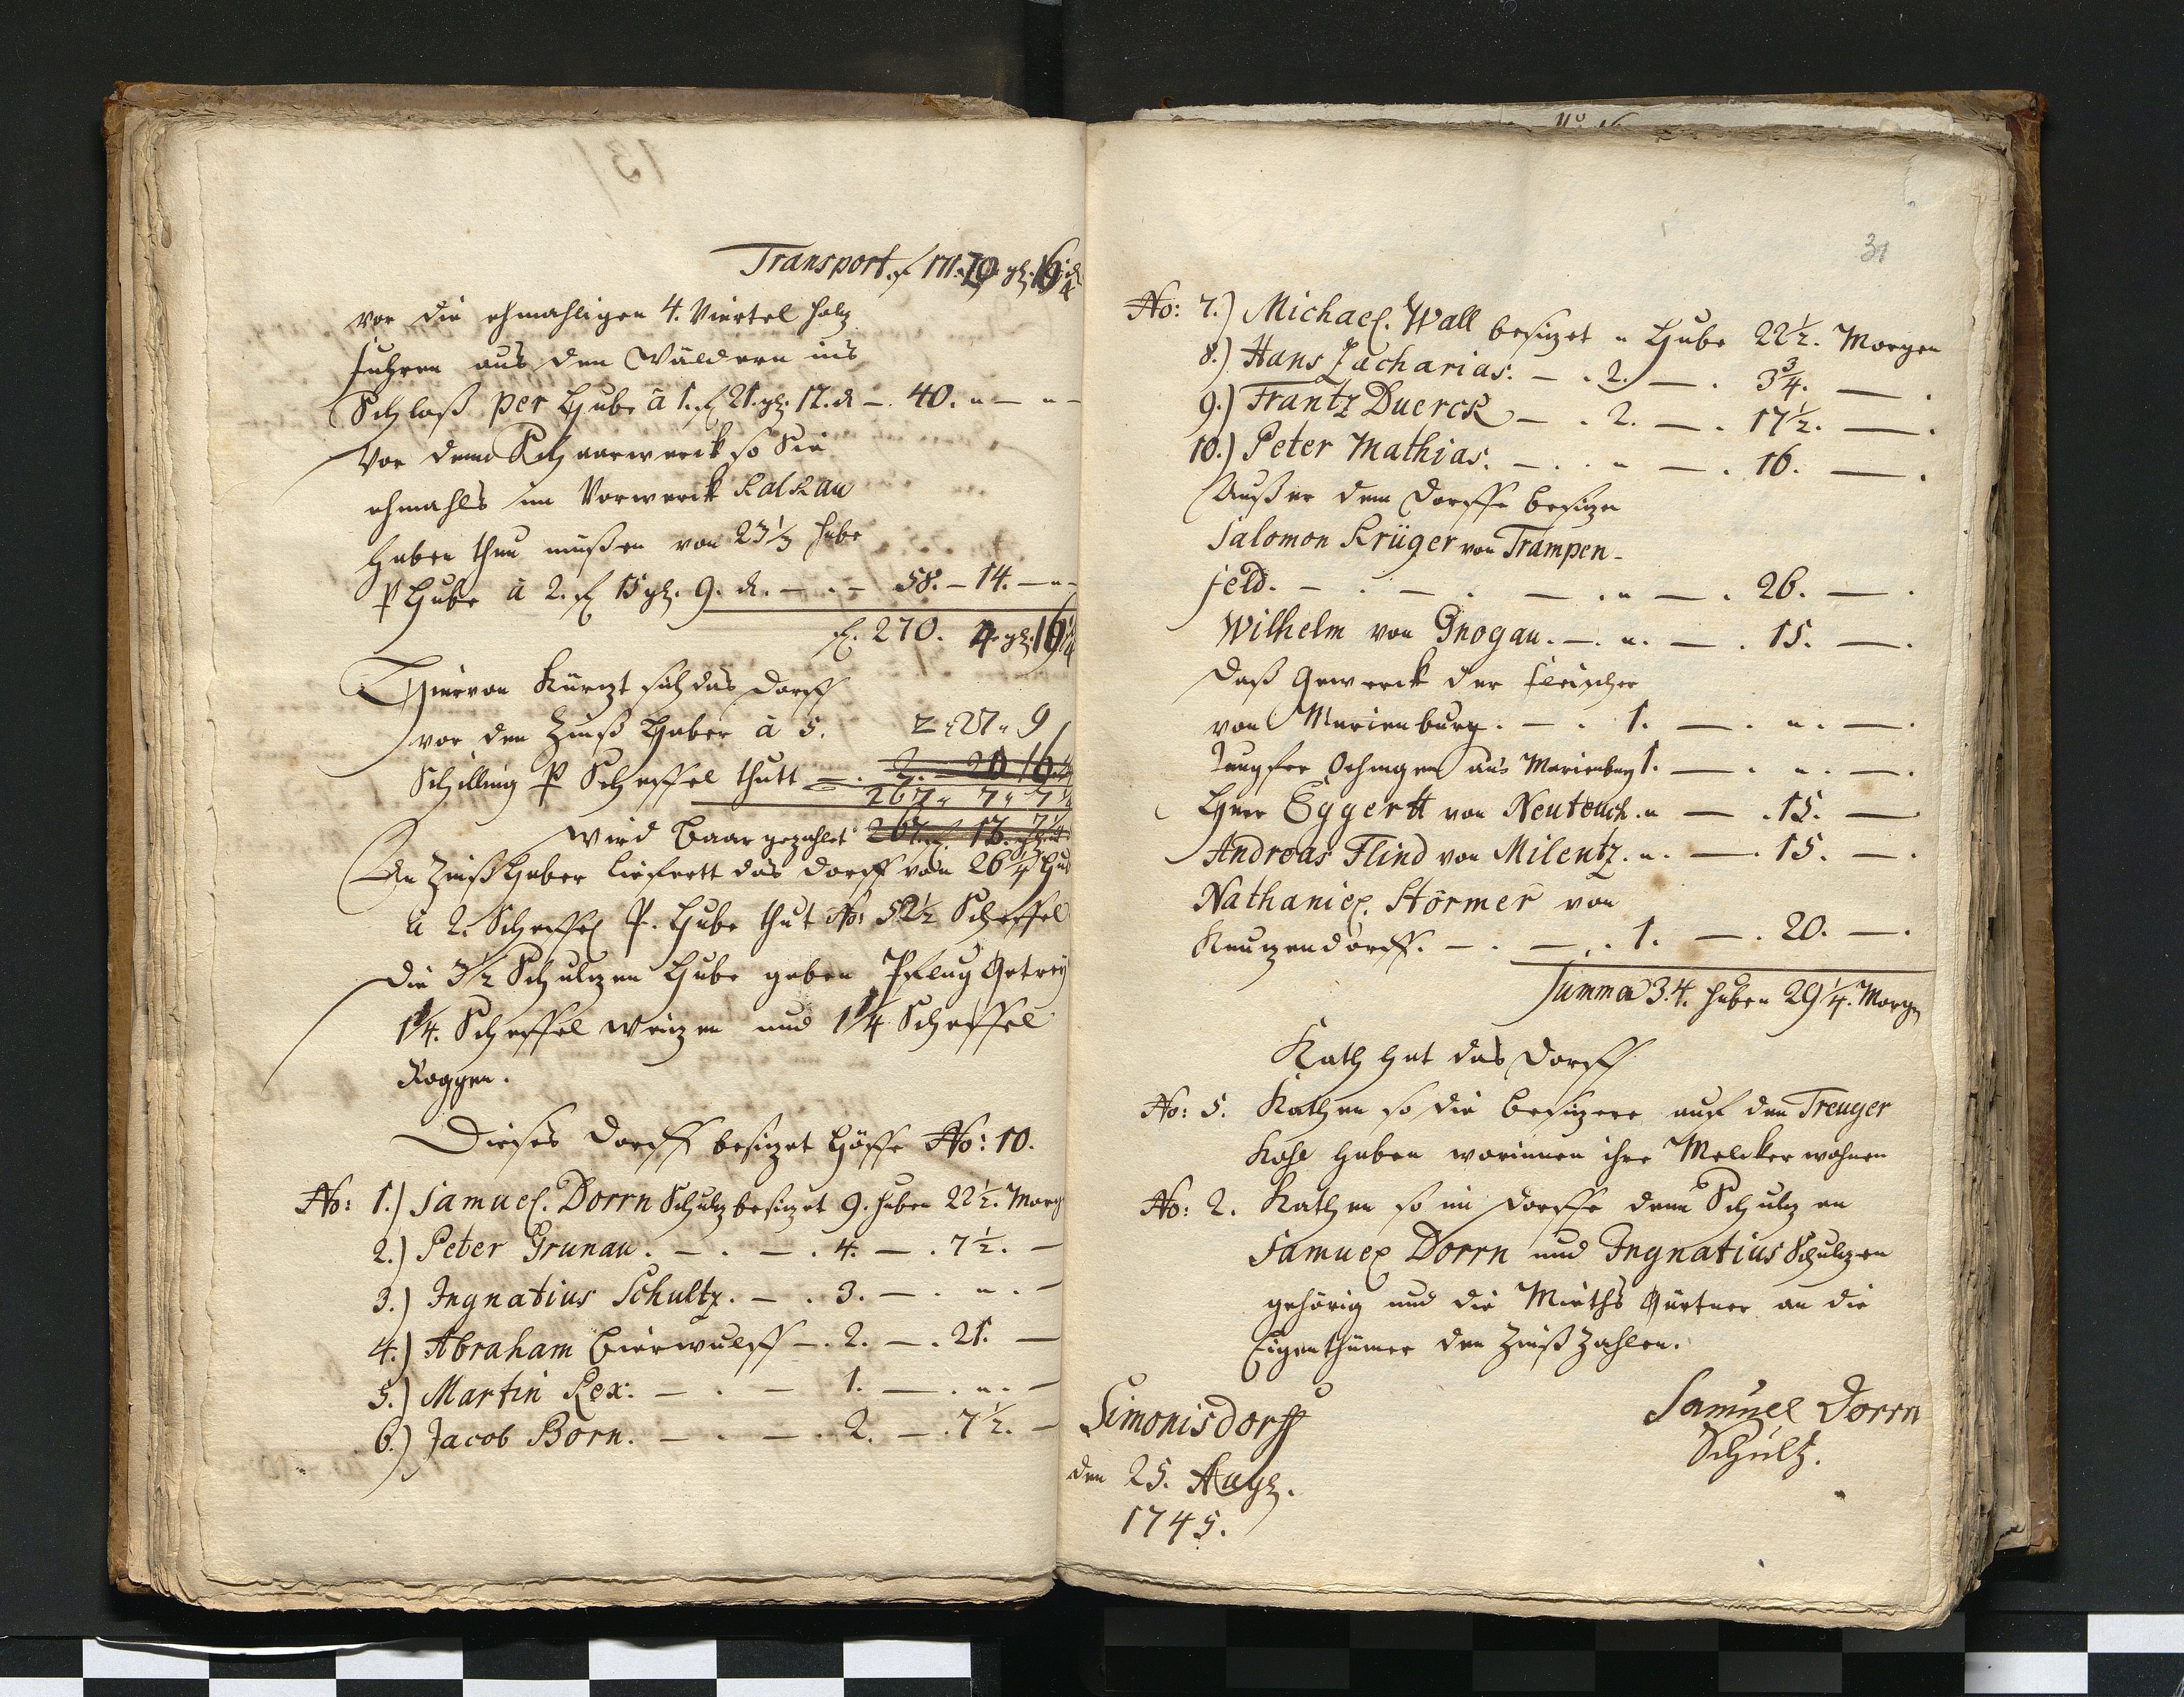 Transport. f 171. 20 gl. 16 1/4 d
vor die ehmahligen 4. Viertel Holz
Fuhren aus den Wäldern ins
Schloß per Hube â 1. f 21. gl. 12. d — 40. " — " —
Vor dem Scharwerck so Sie
ehmahls im Vorwerck Kalkau
haben thun müßen von 23 1/3 Hube
P Hube â 2. f 15 gl. 9. d. — . — 58. — 14. — " —
f. 270. 4 gl. 16 1/4
Hiervon Kürtzt sich das Dorff
vor den Zinß Haber â 5. 2 " 27 " 9
Schilling P Scheffel thutt — . 2. — 20 16
267 " 7 " 7 1/4
wird baar gezahlet 267 f. 7 1/4
An Zinß Haber liefrett das Dorff von 26 1/4 Hub
â 2. Scheffel P. Hube thut No: 52 1/2 Scheffel
Die 3 1/2 Schultzen Hube geben Pflug Getrey
1 1/4. Scheffel Weitzen und 1 1/4 Scheffel
Roggen.
Dieses Dorff besitzet Höffe No: 10.
No: 1.) Samuel. Dorrn Schultz besitzet 9. Huben 22 1/2. Morg
2.) Peter Grunau. — . — . 4. — . 7 1/2. —
3.) Ingnatius Schultz. — . 3. — . " . —
4.) Abraham Bierwulff — . 2. — . 21. —
5.) Martin Lex. — . — 1. — . " . —
6.) Jacob Born. — . — . 2. — . 7 1/2. —
31
No: 7.) Michael. Wall besitzet " Hube 22 1/2. Morgen
8.) Hans Zacharias. — . 2. — . 3 3/4. — .
9.) Frantz Duerck — . 2. — . 17 1/2. — .
10.) Peter Mathias. — . . " — . 16. — .
Außer dem Dorffe besitzen
Salomon Krüger von Trampen-
feld. — . — . — . " — . 26. — .
Wilhelm von Gnogau. — . " . — . 15. — .
Daß Gewerck der Fleischer
von Marienburg. — . 1. — . " . — .
Jungfer Oehmgen aus Marienburg 1. — . " . — .
Herr Eggertt von Neuteuch. " — . 15. —
Andreas Flind von Milentz. " . — . 15. — .
Nathaniel. Störmer von
Kuntzendorff. — . — . 1. — . 20. — .
Summa 34. Huben 29 1/4. Morgen
Kath hat das Dorff
No: 5. Kathen so die besitzere auf den Treuger
Kohl haben worinnen ihre Melcker wohnen
No: 2. Kathen so im Dorffe dem Schultzen
Samuel Dorrn und Ingnatius Schultzen
gehörig und die Mieths Gärtner an die
Eigenthümer den Zinß Zahlen.
Samuel Dorrn
Schultz.
Simonisdorff
den 25. Aug.
1745.